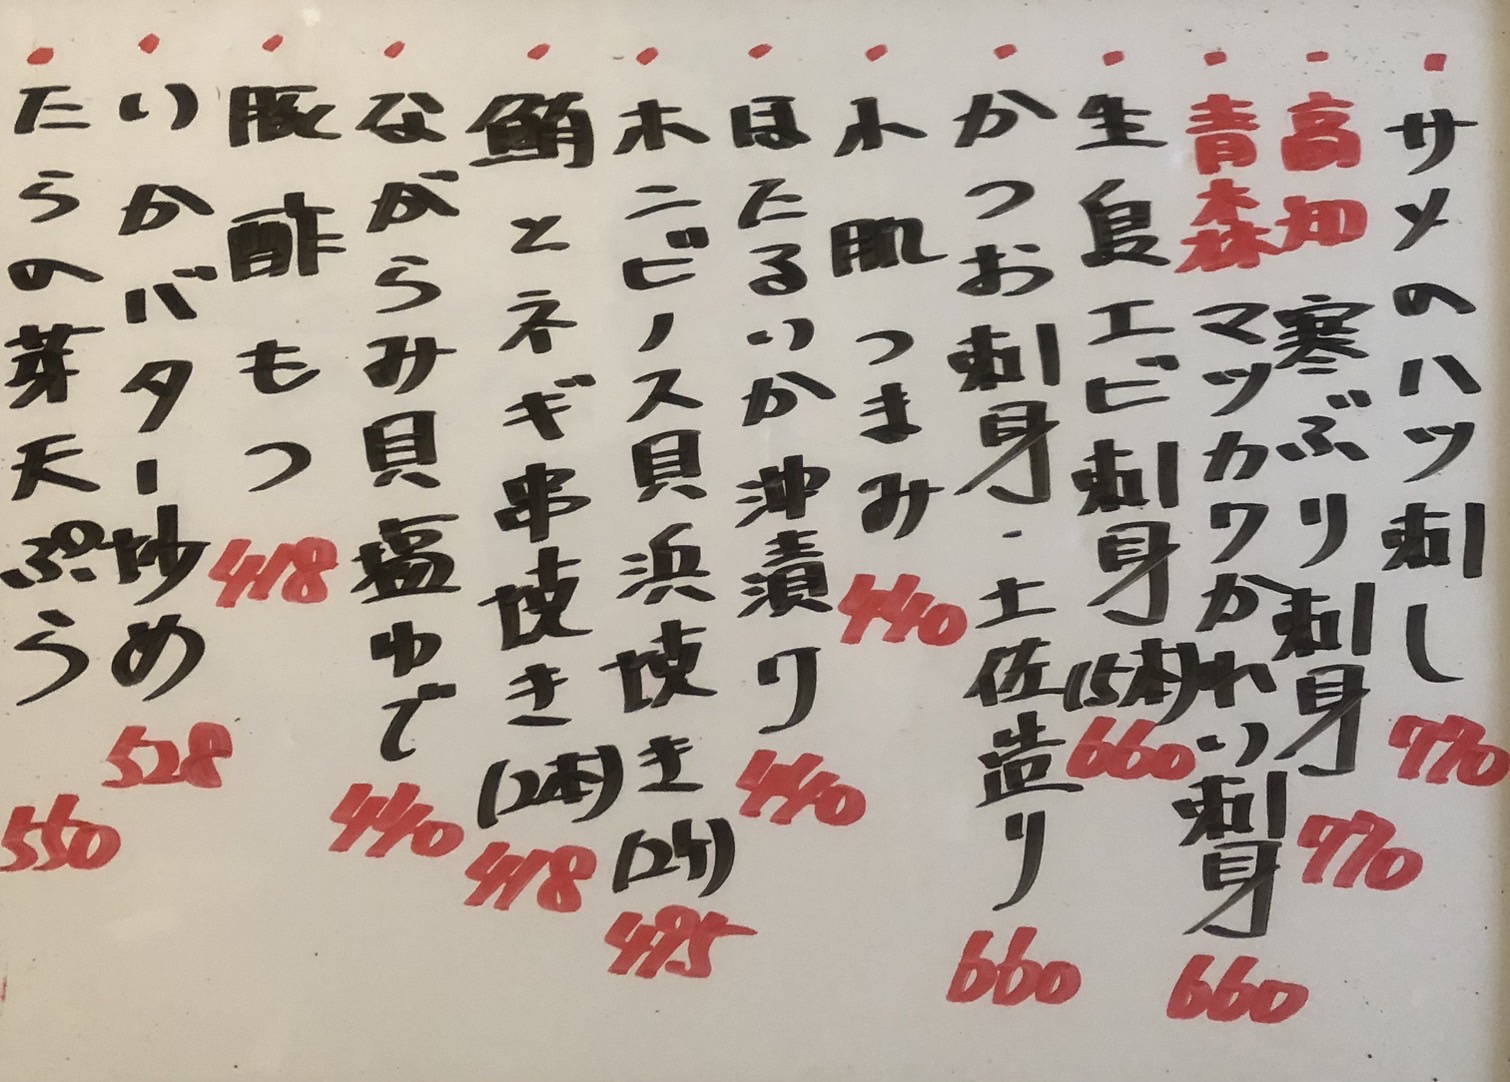 ・サメのハツ刺し 770
・高知 寒ぶり刺身 770
・青森 マツカワかれい刺身 660
・生島エビ刺身(15本) 660
・かつお刺身・土佐造り 660
・水肌つまみ 440
・ほたるいか沖漬り 440
・ホンビノス貝浜焼き(2ケ) 495
・鮪とネギ串焼き(2本) 418
・ながらみ貝塩ゆで 440
・豚酢もつ 418
・いかバター炒め 528
・たらの芽天ぷら 550